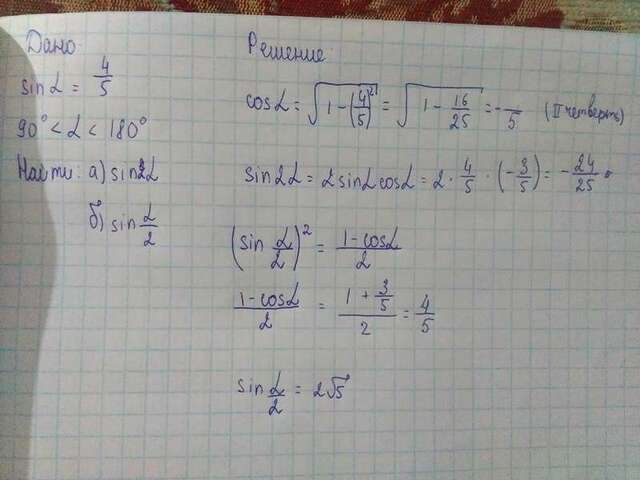 Дано
sin α = 4/5
90° < α < 180°
Найти: а) sin2α
б) sin α/2
Решение
cos α = √(1 - (4/5)²) = √(1 - 16/25) = - /5 (II четверть)
sin2α = 2 sin α cos α = 2 · 4/5 · (-3/5) = -24/25
(sin α/2)² = (1-cos α)/2
(1-cos α)/2 = (1 + 3/5)/2 = 4/5
sin α/2 = 2√5